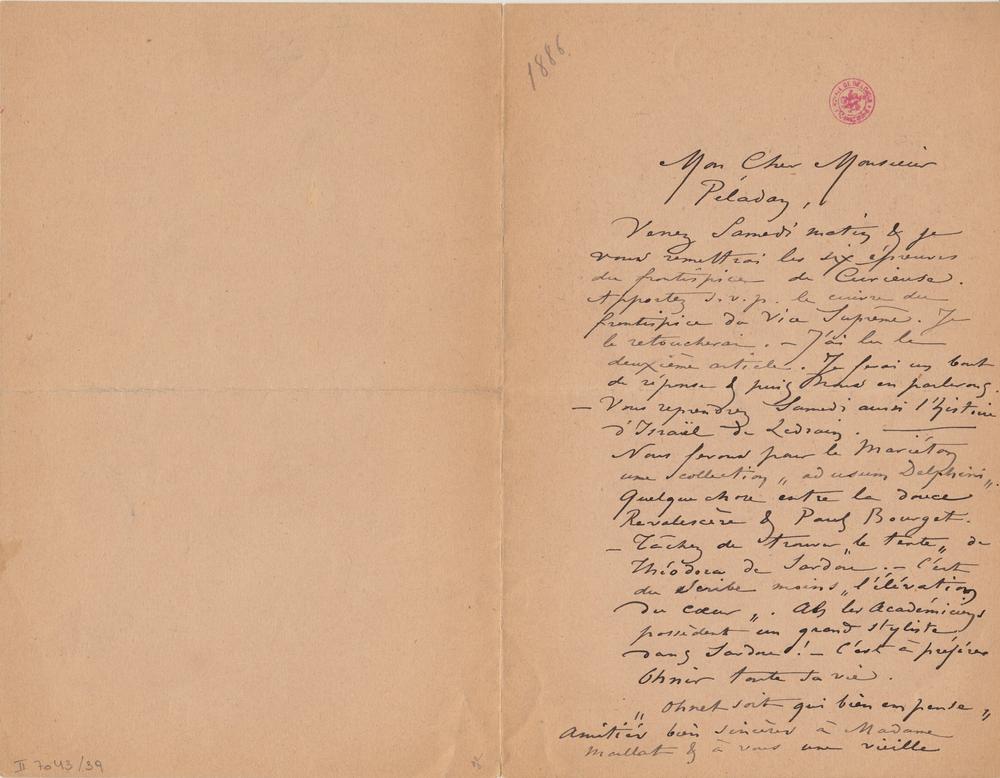 1886.
Mon Cher Monsieur
Péladan,
Venez Samedi matin & je
vous remettrai les six épreuves
du frontispice de Curieuse.
Apportez s.v.p. le cuivre du
frontispice du Vice Suprême. Je
le retoucherai. – J'ai lu le
deuxième article. Je ferai un bout
de réponse & puis nous en parlerons.
– Vous reprendrez Samedi aussi l'histoire
d'Israël de Ledrain.
Nous ferons pour le Mariéton
une collection „ ad usum Delphini „.
Quelque chose entre la douce
Revalescère & Paul Bourget.
– Tâchez de trouver „ le texte „ de
Théodora de Sardou. – C'est
du Scribe moins „ l'élévation
du cœur „. Ah les Académiciens
possèdent un grand styliste
dans Sardou! – C'est à préférer
Ohnet toute sa vie.
„ Ohnet soit qui bien en pense „
Amitiés bien sincères à Madame
Maillat & à vous une vieille
II 7043/39